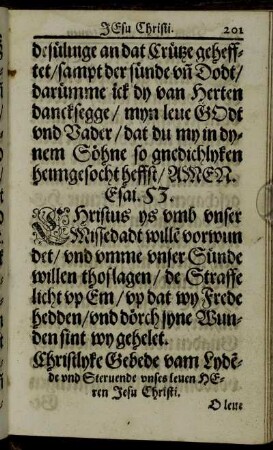 JEsu Christi. 201
desülunge an dat Crütze geheff-
tet/sampt der sünde vñ Dodt/
darümme ick dy van Herten
dancksegge/ myn leue GOdt
vnd Vader/ dat du my in dy-
nem Söhne so gnedichlyken
heimgesocht heffst/ AMEN.
Esai. 53.
CHristus ys vmb vnser
Missedadt willē vorwun
det/ vnd vmme vnser Sünde
willen thoslagen/ de Straffe
licht vp Em/ vp dat wy Frede
hedden/ vnd dörch syne Wun-
den sint wy gehelet.
Christlyke Gebede vam Lydē-
de vnd Steruende vnses leuen HE-
ren Jesu Christi.
O leue